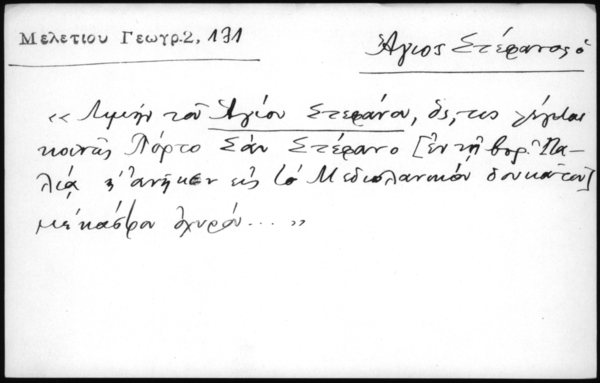 Μελετίου Γεωγρ. 2, 131
Άγιος Στέφανος ὁ
« Λιμὴν τοῦ Ἁγίου Στεφάνου, ὅστις λέγεται
κοινῶς Πόρτο Σὰν Στέφανο [ἐν τῇ βορ. Ἰτα-
λίᾳ κ' ἀνῆκεν εἰς τὸ Μεδιολανικὸν δουκάτον]
μὲ κάστρον ὀχυρόν... »